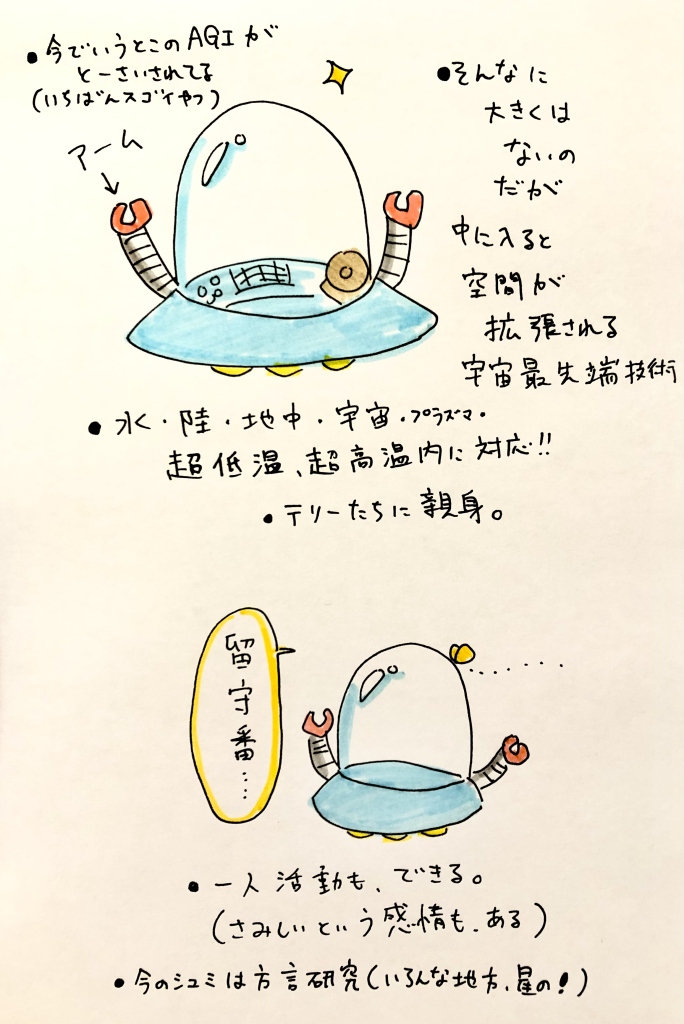 ●今でいうとこのAGIが
とーさいされてる
(いちばんスゴイやつ)
アーム
●そんなに
大きくは
ないの
だが
中に入ると
空間が
拡張される
宇宙最先端技術
●水・陸・地中・宇宙・プラズマ・
超低温、超高温内に対応!!
●テリーたちに親身。
留守番……
●一人活動も、できる。
(さみしいという感情も、ある)
●今のシュミは方言研究(いろんな地方、星の!)